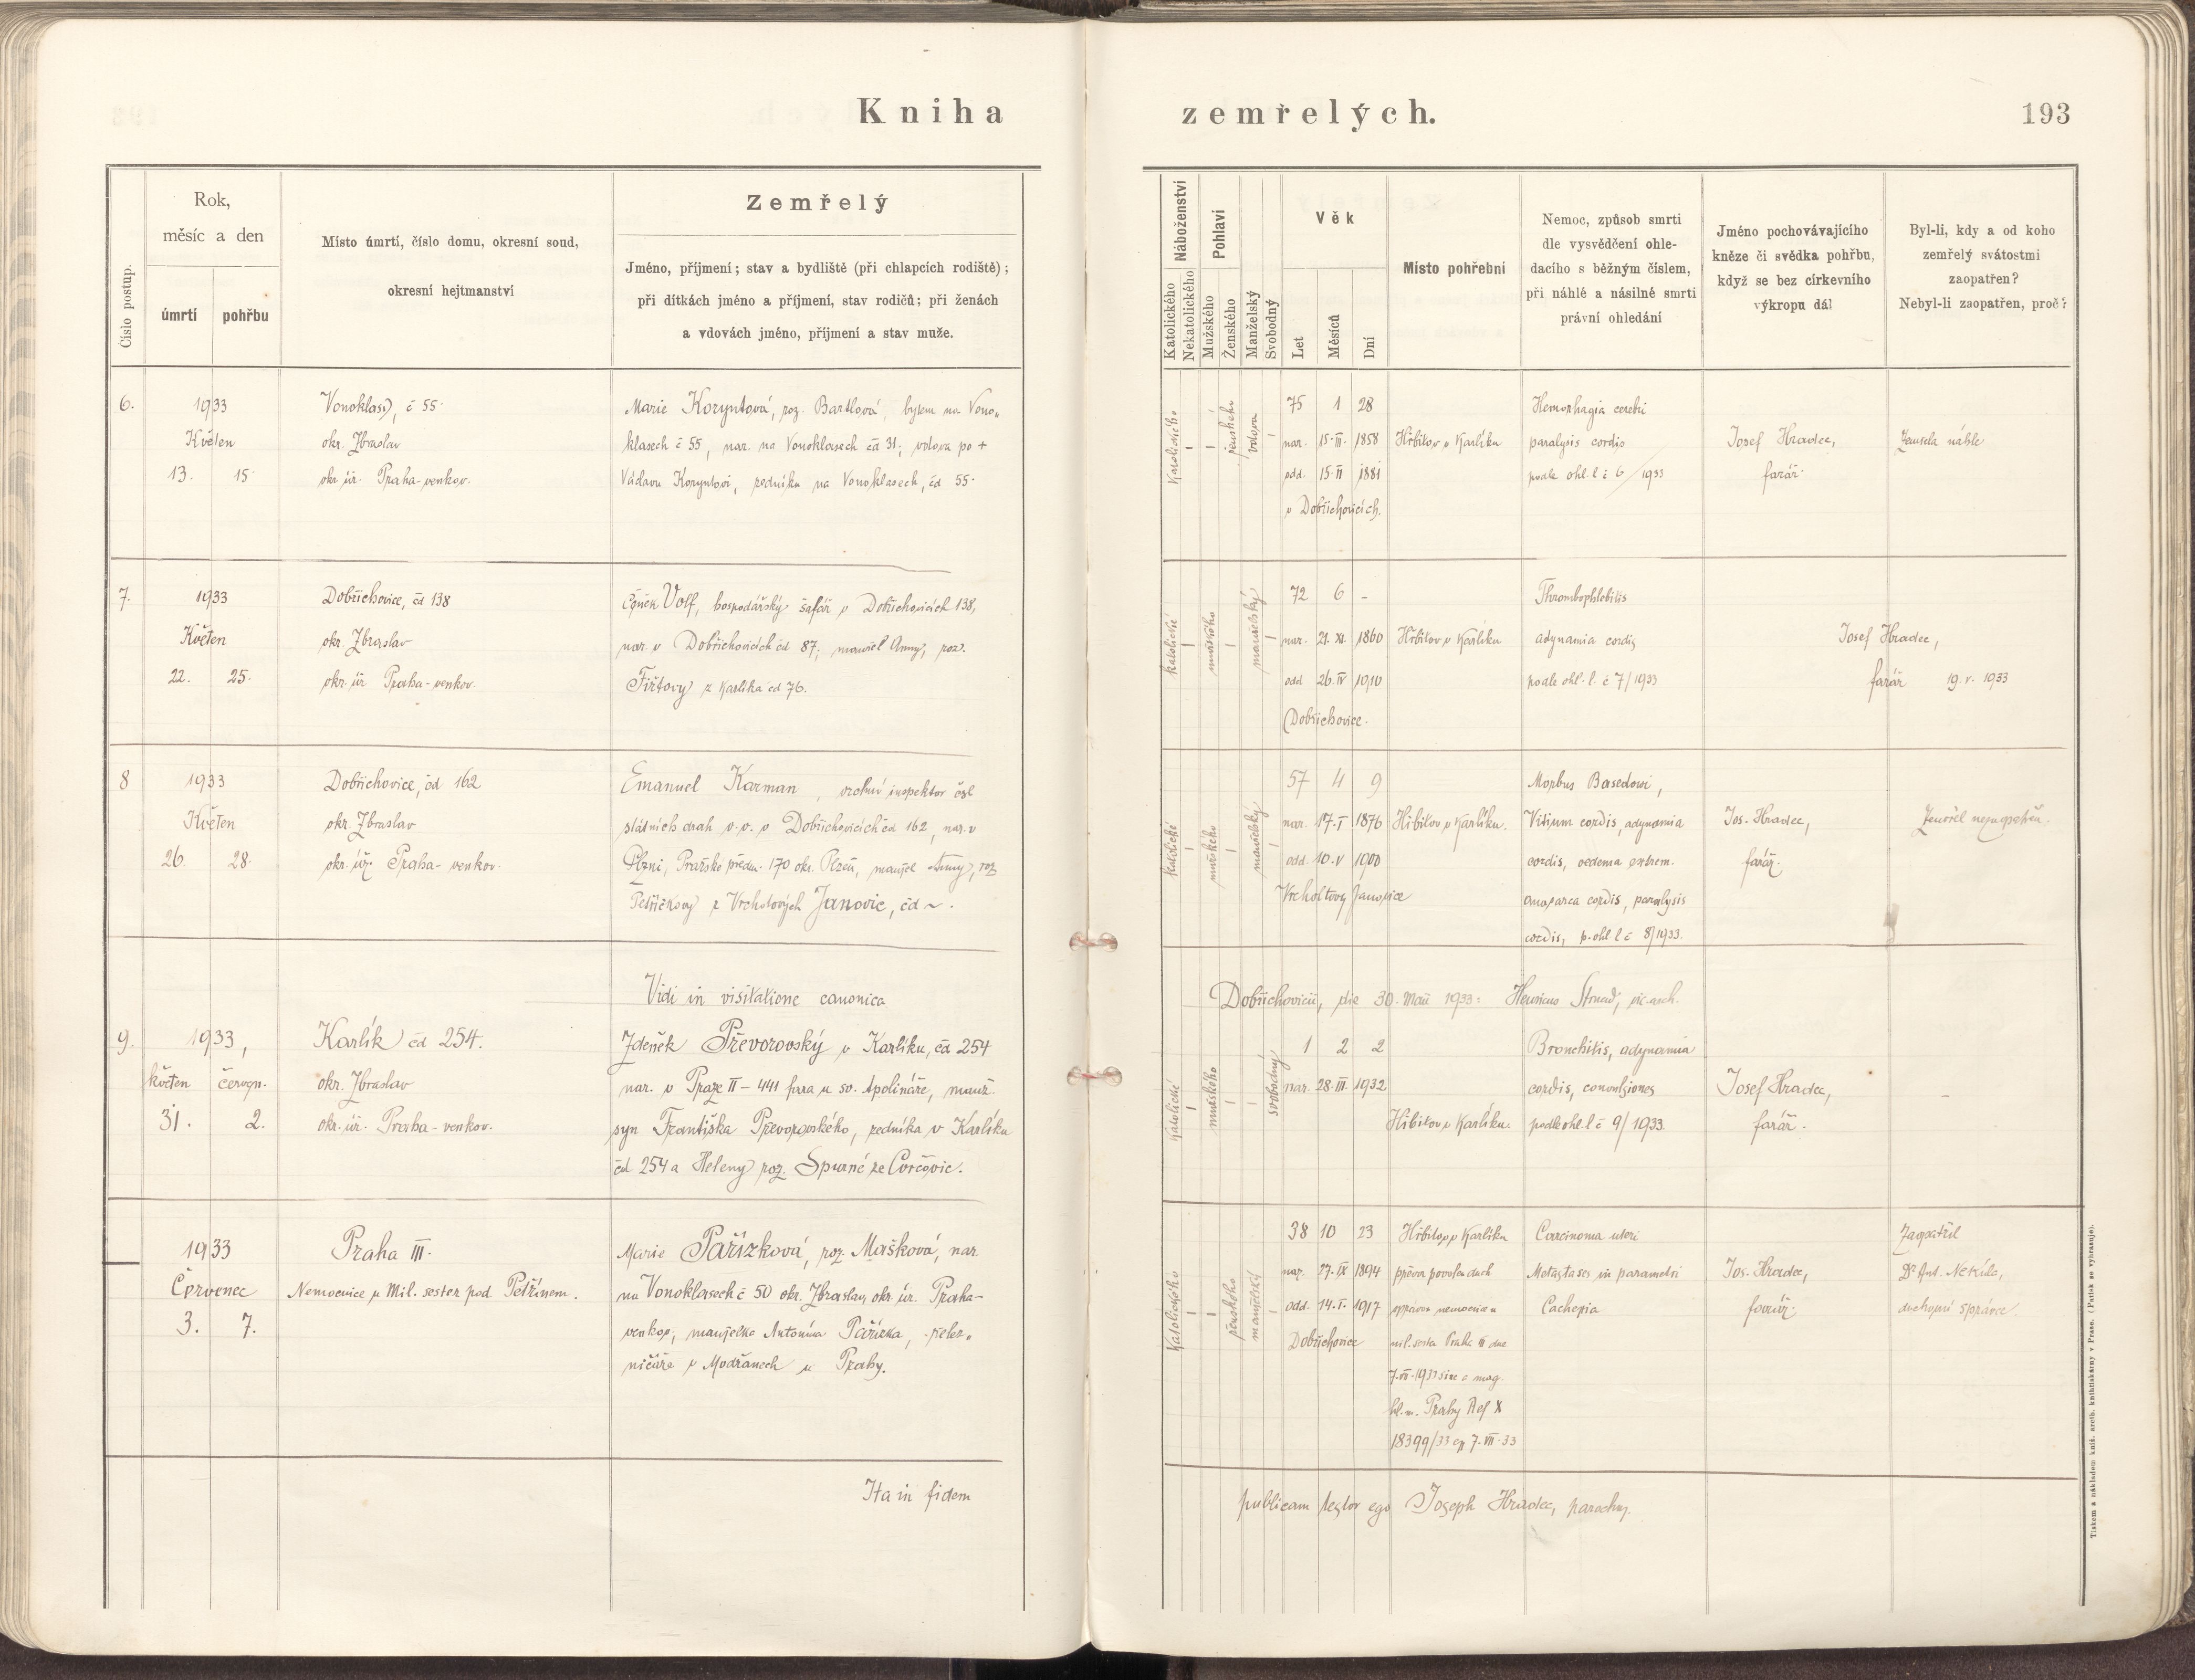 Kniha zemřelých.
193
Číslo postup.
Rok,
měsíc a den
úmrtí
pohřbu
Místo úmrtí, číslo domu, okresní soud,
okresní hejtmanství
Zemřelý
Jméno, příjmení; stav a bydliště (při chlapcích rodiště);
při dítkách jméno a příjmení, stav rodičů; při ženách
a vdovách jméno, příjmení a stav muže.
Náboženství
Katolického
Nekatolického
Pohlaví
Mužského
Ženského
Manželský
Svobodný
Věk
Let
Měsíců
Dní
Místo pohřební
Nemoc, způsob smrti
dle vysvědčení ohle-
dacího s běžným číslem,
při náhlé a násilné smrti
právní ohledání
Jméno pochovávajícího
kněze či svědka pohřbu,
když se bez církevního
výkropu dál
Byl-li, kdy a od koho
zemřelý svátostmi
zaopatřen?
Nebyl-li zaopatřen, proč?
6.
1933
Květen
13. 15.
Vonoklasy, č 55.
okr. Zbraslav
okr. úř. Praha-venkov.
Marie Koryntová, roz. Bartlová, bytem na Vono-
klasech č 55, nar. na Vonoklasech čd 31; vdova po +
Václavu Koryntovi, zedníku na Vonoklasech, čd 55.
Katolického
ženského
vdova
75 1 28
nar. 15. III. 1858
odd. 15. II 1881
v Dobřichovicích.
Hřbitov v Karlíku
Hemorhagia cerebri
paralysis cordis
podle ohl. l. č 6/1933
Josef Hradec,
farář.
Zemřela náhle
7.
1933
Květen
22. 25.
Dobřichovice, čd 138
okr. Zbraslav
okr. úř. Praha-venkov.
Čeněk Volf, hospodářský šafář v Dobřichovicích 138,
nar. v Dobřichovicích čd 87; manžel Anny, roz.
z Karlíka čd 76.
katolické
mužského
manželský
72 6 -
nar. 21. XI. 1860
odd 26. IV 1910
Dobřichovice.
Hřbitov v Karlíku
Thrombophlebitis
adynamia cordis
podle ohl. l. č 7/1933
Josef Hradec,
farář
19. V. 1933
8
1933
Květen
26. 28.
Dobřichovice, čd 162
okr. Zbraslav
okr. úř. Praha-venkov.
Emanuel Karman, vrchní inspektor čsl
státních drah v.v. v Dobřichovicích čd 162, nar. v
Plzni, Pražské předm. 170 okr. Plzeň, manžel Anny, roz
Petřičkovy z Vrchotových Janovic, čd ~.
katolické
mužského
manželský
57 4 9
nar. 17. I 1876
odd. 10. V 1900
Vrchottovy Janovice
Hřbitov v Karlíku.
Morbus Basedowi,
Vitium cordis, adynamia
cordis, oedema extrem.
anasarca cordis, paralysis
cordis, p. ohl l č 8/1933.
Jos. Hradec,
farář.
Zemřel nezaopatřen.
Vidi in visitatione canonica
Dobřichovicii, die 30. Maii 1933: Henricus Strnad, vic. arch.
9.
1933,
květen červen.
31. 2.
Karlík čd 254.
okr. Zbraslav
okr. úř. Praha-venkov.
Zdeněk Převorovský v Karlíku, čd 254
nar. v Praze II – 441 fara u sv. Apolináře, manž.
syn Františka Převorovského, zedníka v Karlíku
čd 254 a Heleny roz. Spurné ze
katolické
mužského
svobodný
1 2 2
nar. 28. III. 1932
Hřbitov v Karlíku.
Bronchitis, adynamia
cordis, convulsiones
podle ohl. l č 9/1933.
Josef Hradec,
farář.
-
1933
Červenec
3. 7.
Praha III.
Nemocnice u Mil. sester pod Petřínem.
Marie Pařízková, roz. Mašková, nar.
na Vonoklasech č 50 okr. Zbraslav, okr. úř. Praha-
venkov, manželka Antonína Pařízka, želez-
ničáře v Modřanech u Prahy.
Katolického
ženského
manželský
38 10 23
nar. 27. IX 1894
odd. 14. I. 1917
Dobřichovice
Hřbitov v Karlíku
převoz povolen duch
správou nemocnice u
mil. sester Praha III dne
7. VII. 1933 a mag.
hl. m. Prahy Ref X
18399/33 7. VII. 33
Carcinoma uteri
Metastases in parametri
Cachexia
Jos. Hradec,
farář.
Zaopatřil
Dr Ant.
duchovní správce.
Ita in fidem publicam testor ego Joseph Hradec, parochus.
Tiskem a nákladem kníž. arcib. knihtiskárny v Praze. (Patisk se vyhrazuje).